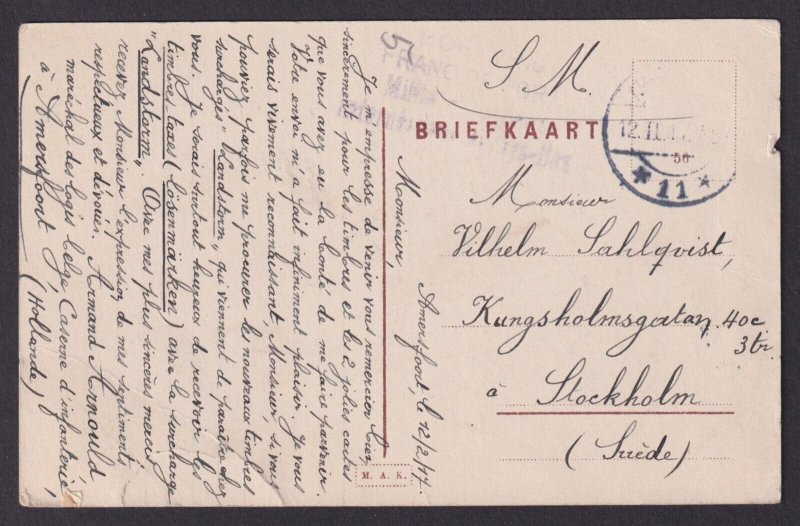 S. M.
BRIEFKAART
12.II.17
56
* 11 *
Monsieur
Vilhelm Sahlqvist,
Kungsholmsgatan, 40c
3tr
à Stockholm
(Suède)
M. A. K.
FRANC
Amersfoort, le 12/2/17.
Monsieur,
Je m'empresse de venir vous remercier bien
sincèrement pour les timbres et les 2 jolies cartes
que vous avez eu la bonté de me faire parvenir.
Votre envoi m'a fait infiniment plaisir. Je vous
serais vivement reconnaissant, Monsieur, si vous
pouviez parfois me procurer les nouveaux timbres
surchargés "Landstorm", qui viennent de paraître chez
vous. Je serais surtout heureux de recevoir les
timbres taxes (lösenmärken) avec la surcharge
"Landstorm". Avec mes plus sincères mercis
recevez Monsieur l'expression de mes sentiments
respectueux et dévoués. Armand Arnould
maréchal des logis belge Caserne d'infanterie,
à Amersfoort
(Hollande)